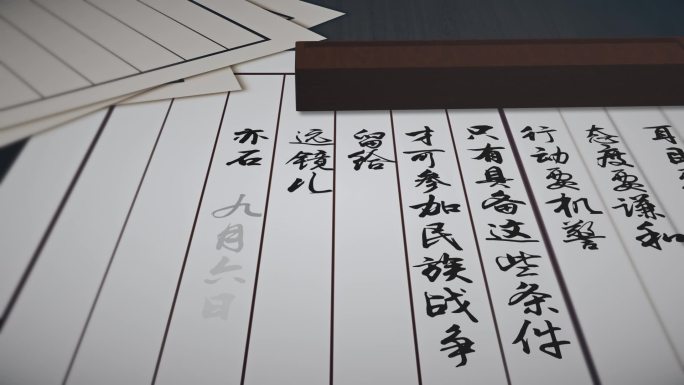 态度要谦和
行动要机警
只有具备这些条件
才可参加民族战争
留给
远镜儿
亦石
九月六日